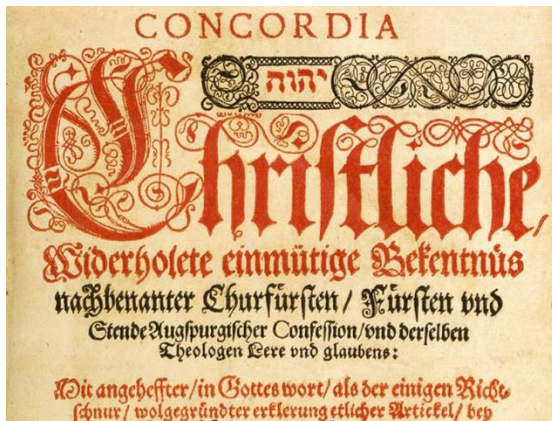 CONCORDIA
יהוה
Christliche/
Widerholete einmütige Bekentnüs
nachbenanter Churfürsten / Fürsten vnd
Stende Augspurgischer Confession/vnd derselben
Theologen Lere vnd glaubens:
Mit angeheffter/in Gottes wort/ als der einigen Richt⸗
schnur/ wolgegründter erklerung etlicher Artickel/ bey